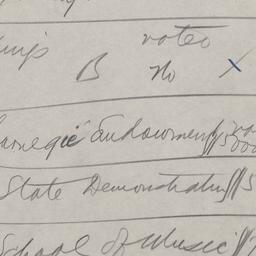 voted
B no x
Carnegie Endowment
State Demonstration
School of Music